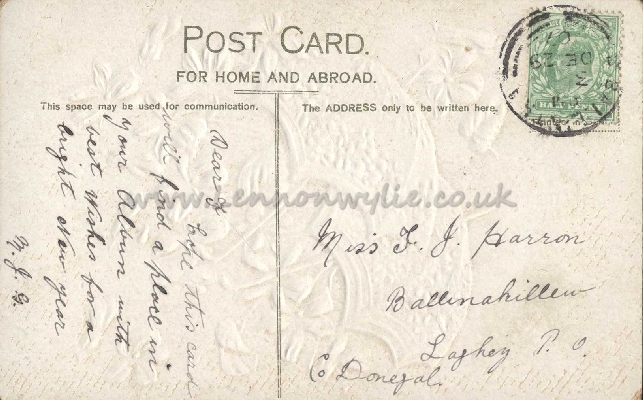 POST CARD.
FOR HOME AND ABROAD.
This space may be used for communication.
The ADDRESS only to be written here.
Dear J
hope this card
will find a place in
your Album with
best wishes for a
bright New year
N. J. G.
Miss F. J. Harron
Ballinakillew
Laghey P. O.
Co Donegal.
DE 23
www.lennonwylie.co.uk